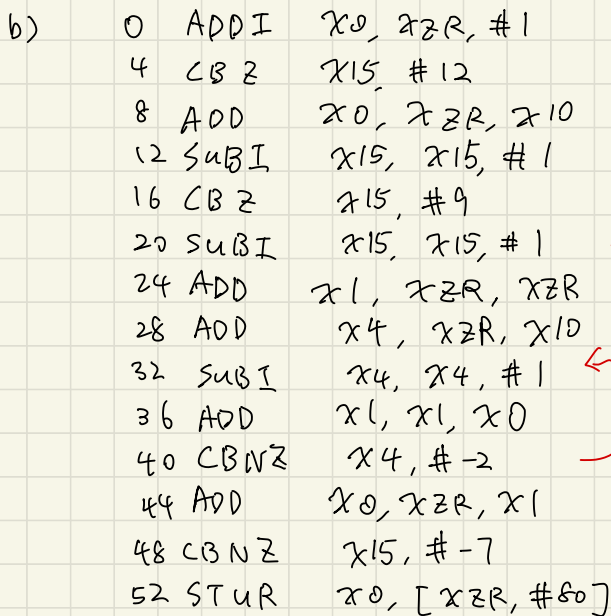 b) 0 ADDI X0, XZR, #1
4 CBZ X15, #12
8 ADD X0, XZR, X10
12 SUBI X15, X15, #1
16 CBZ X15, #9
20 SUBI X15, X15, #1
24 ADD X1, XZR, XZR
28 ADD X4, XZR, X10
32 SUBI X4, X4, #1
36 ADD X1, X1, X0
40 CBNZ X4, #-2
44 ADD X0, XZR, X1
48 CBNZ X15, #-7
52 STUR X0, [XZR, #80]